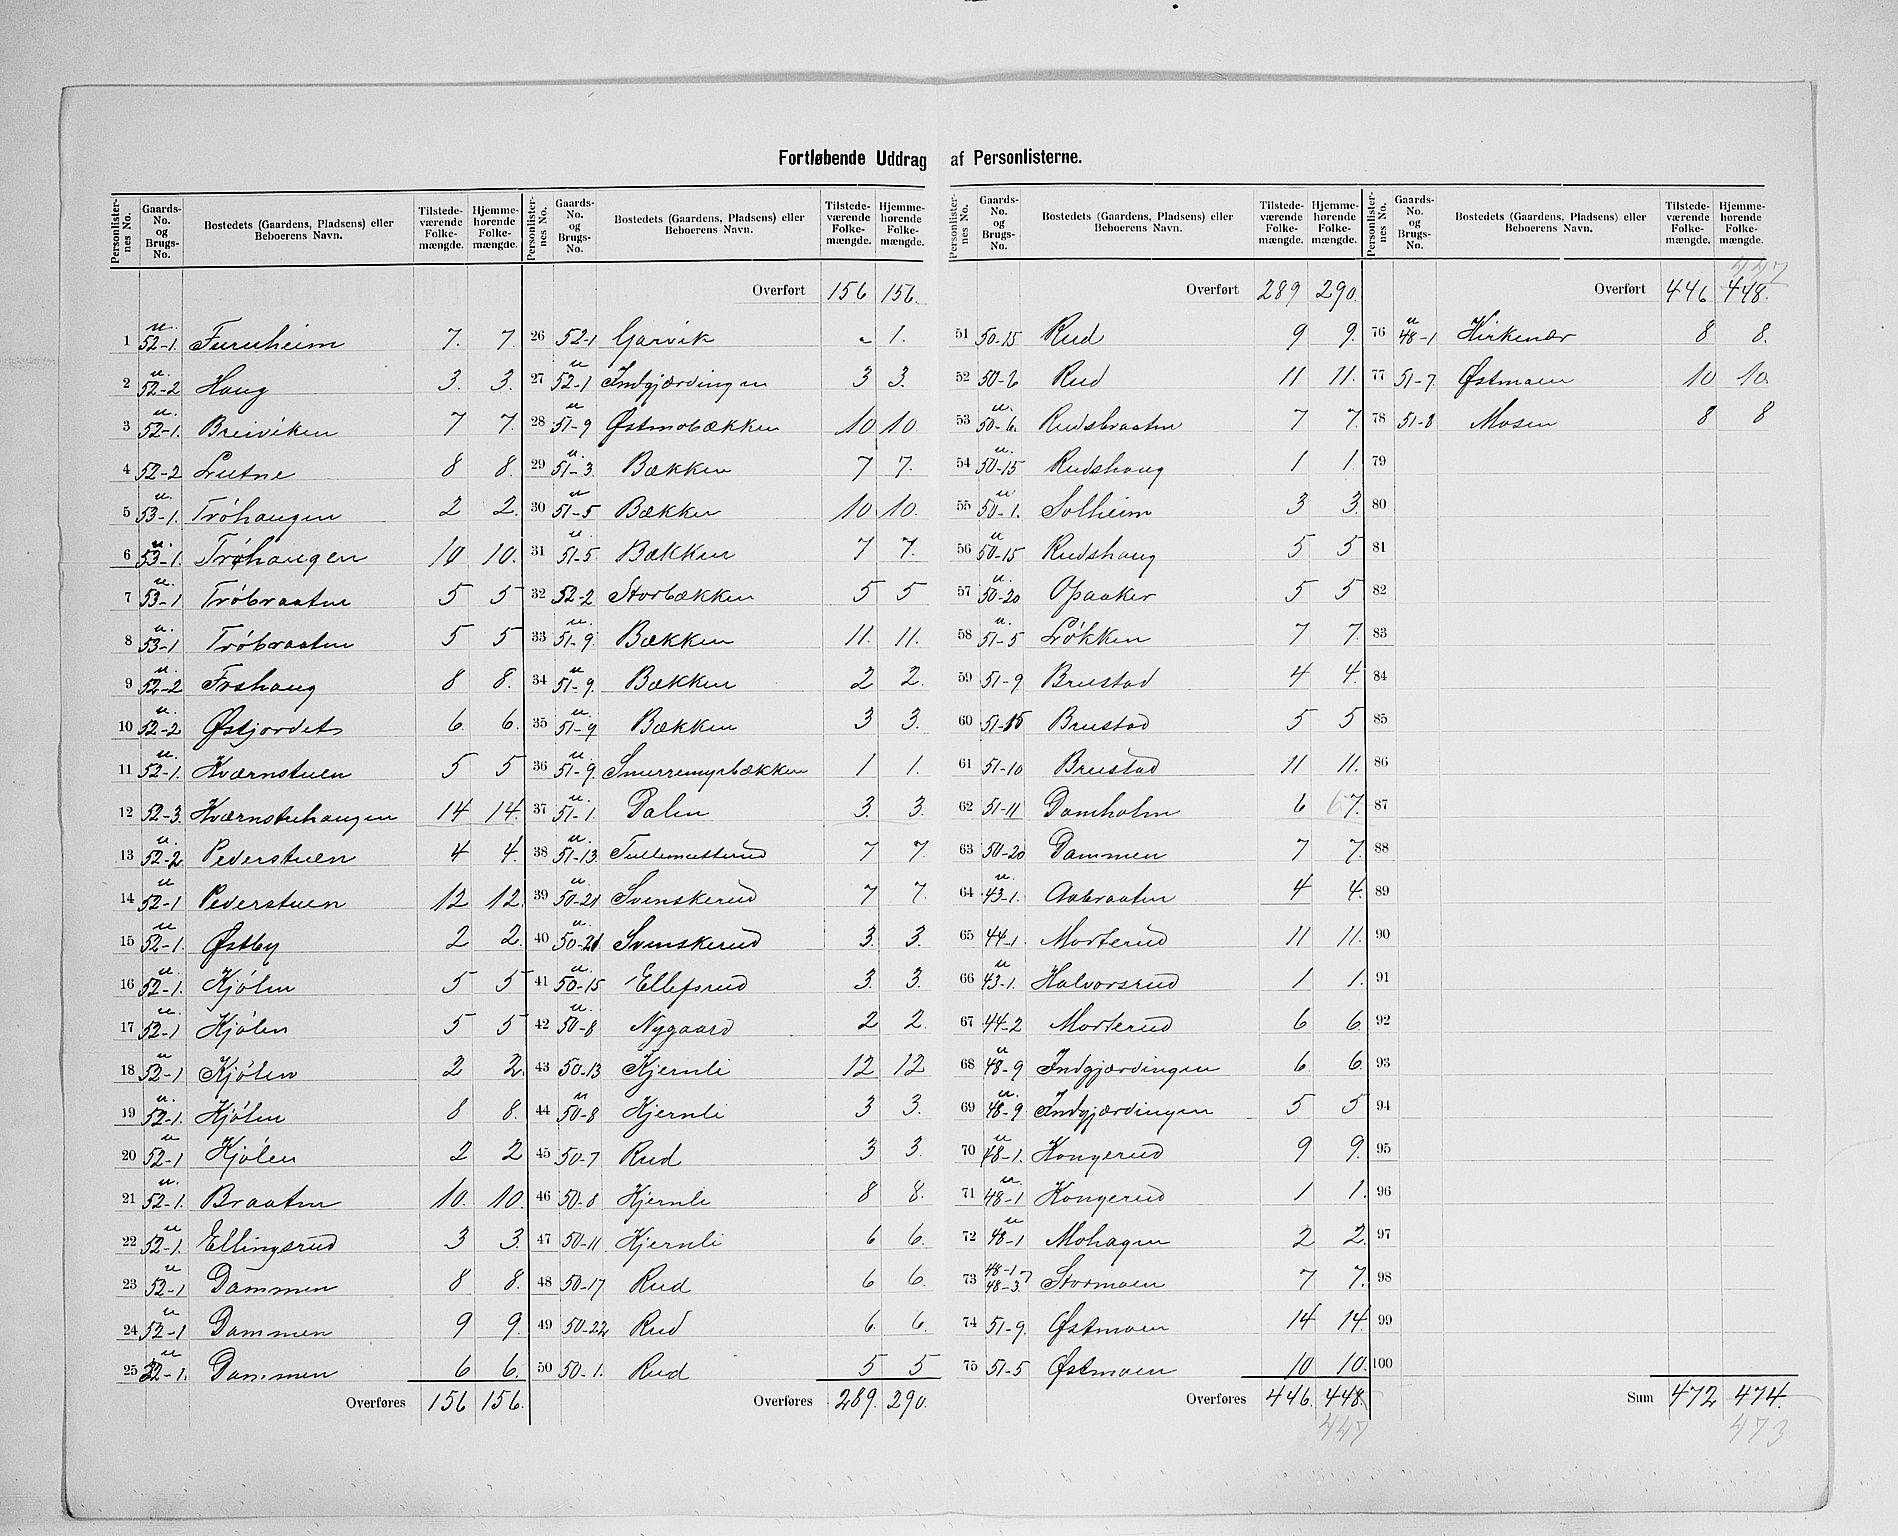 Fortløbende Uddrag af Personlisterne.
Personlister-nes No. | Gaards-No. og Brugs-No. | Bostedets (Gaardens, Pladsens) eller Beboerens Navn. | Tilstede-værende Folke-mængde. | Hjemme-hørende Folke-mængde.
1 u. 52-1. Furuheim 7. 7.
2 u. 52-2 Haug 3. 3.
3 u. 52-1. Breiviken 7 7.
4 52-2 Lutne 8 8.
5 u. 53-1. Trøhaugen 2 2.
6 u. 53-1. Trøhaugen 10 10.
7 u. 53-1 Trøbraaten 5 5
8 u. 53-1 Trøbraaten 5 5
9 u 52-2 Froshaug 8 8.
10 u. 52-2 Østjordet 6. 6.
11 u. 52-1. Kværnstuen 5 5
12 52-3. Kværnstuhaugen 14 14.
13 u. 52-2 Pederstuen 4 4.
14 u 52-1 Pederstuen 12 12.
15 u 52-1. Østby 2 2.
16 u. 52-1. Kjølen 5 5
17 u. 52-1 Kjølen 5 5
18 u 52-1 Kjølen 2 2.
19 u. 52-1. Kjølen 8 8.
20 u 52-1 Kjølen 2 2
21 u. 52-1. Braaten 10. 10.
22 u 52-1. Ellingsrud 3 3.
23 u 52-1 Dammen 8 8.
24 u 52-1 Dammen 9 9.
25 u 52-1. Dammen 6 6.
Overføres 156 156.
Personlister-nes No. | Gaards-No. og Brugs-No. | Bostedets (Gaardens, Pladsens) eller Beboerens Navn. | Tilstede-værende Folke-mængde. | Hjemme-hørende Folke-mængde.
Overført 156 156.
26 52-1 Garvik - 1.
27 u 52-1 Indgjærdingen 3 3.
28 u 51-9 Østmobækken 10 10
29 u. 51-3. Bækken 7 7.
30 u 51-5 Bækken 10 10.
31 u. 51-5 Bækken 7 7.
32 52-2 Storbækken 5 5
33 u. 51-9. Bækken 11. 11.
34 u 51-9. Bækken 2 2.
35 u. 51-9 Bækken 3 3.
36 u 51-9. Smurremyrbækken 1 1.
37 u. 51-1. Dalen 3. 3.
38 u. 51-13. Tullemutterud 7 7.
39 u 50-21 Svenskerud 7 7.
40 u. 50-21 Svenskerud 3. 3.
41 u. 50-15 Ellefsrud 3. 3.
42 u. 50-8 Nygaard 2 2.
43 50-13 Kjernli 12 12
44 u 50-8 Kjernli 3 3.
45 50-7 Rud 3 3.
46 50-8 Kjernli 8 8.
47 50-11 Kjernli 6 6.
48 50-17 Rud 6 6.
49 50-22 Rud 6. 6.
50 50-1. Rud 5 5
Overføres 289. 290.
Personlister-nes No. | Gaards-No. og Brugs-No. | Bostedets (Gaardens, Pladsens) eller Beboerens Navn. | Tilstede-værende Folke-mængde. | Hjemme-hørende Folke-mængde.
Overført 289 290.
51 50-15 Rud 9 9.
52 50-6 Rud 11 11.
53 u. 50-6. Rudsbraaten 7 7.
54 u. 50-15 Rudshaug 1 1.
55 u 50-1. Solheim 3 3.
56 u 50-15 Rudshaug 5 5
57 u. 50-20 Opaaker 5 5
58 u. 51-5 Løkken 7 7.
59 51-9 Brustad 4 4.
60 51-15 Brustad 5 5
61 51-10 Brustad 11 11.
62 51-11 Damholm 6 6 7.
63 50-20 Dammen 7 7.
64 u. 43-1. Aabraaten 4 4.
65 44-1. Morterud 11 11.
66 u 43-1. Halvorsrud 1 1.
67 44-2 Morterud 6 6.
68 u 48-9 Indgjærdingen 6. 6.
69 u. 48-9 Indgjærdingen 5 5
70 u 48-1. Kongerud 9 9.
71 u. 48-1 Kongerud 1 1.
72 u 48-1 Mohagen 2 2.
73 48-1 48-3. Stormoen 7 7.
74 51-9. Østmoen 14 14.
75 51-5 Østmoen 10 10.
Overføres 446. 448.
447
Personlister-nes No. | Gaards-No. og Brugs-No. | Bostedets (Gaardens, Pladsens) eller Beboerens Navn. | Tilstede-værende Folke-mængde. | Hjemme-hørende Folke-mængde.
447
Overført 446 448.
76 u 48-1 Kirkenær 8 8.
77 51-7. Østmoen 10 10.
78 51-8 Mosen 8 8
79
80
81
82
83
84
85
86
87
88
89
90
91
92
93
94
95
96
97
98
99
100
Sum 472 474.
473